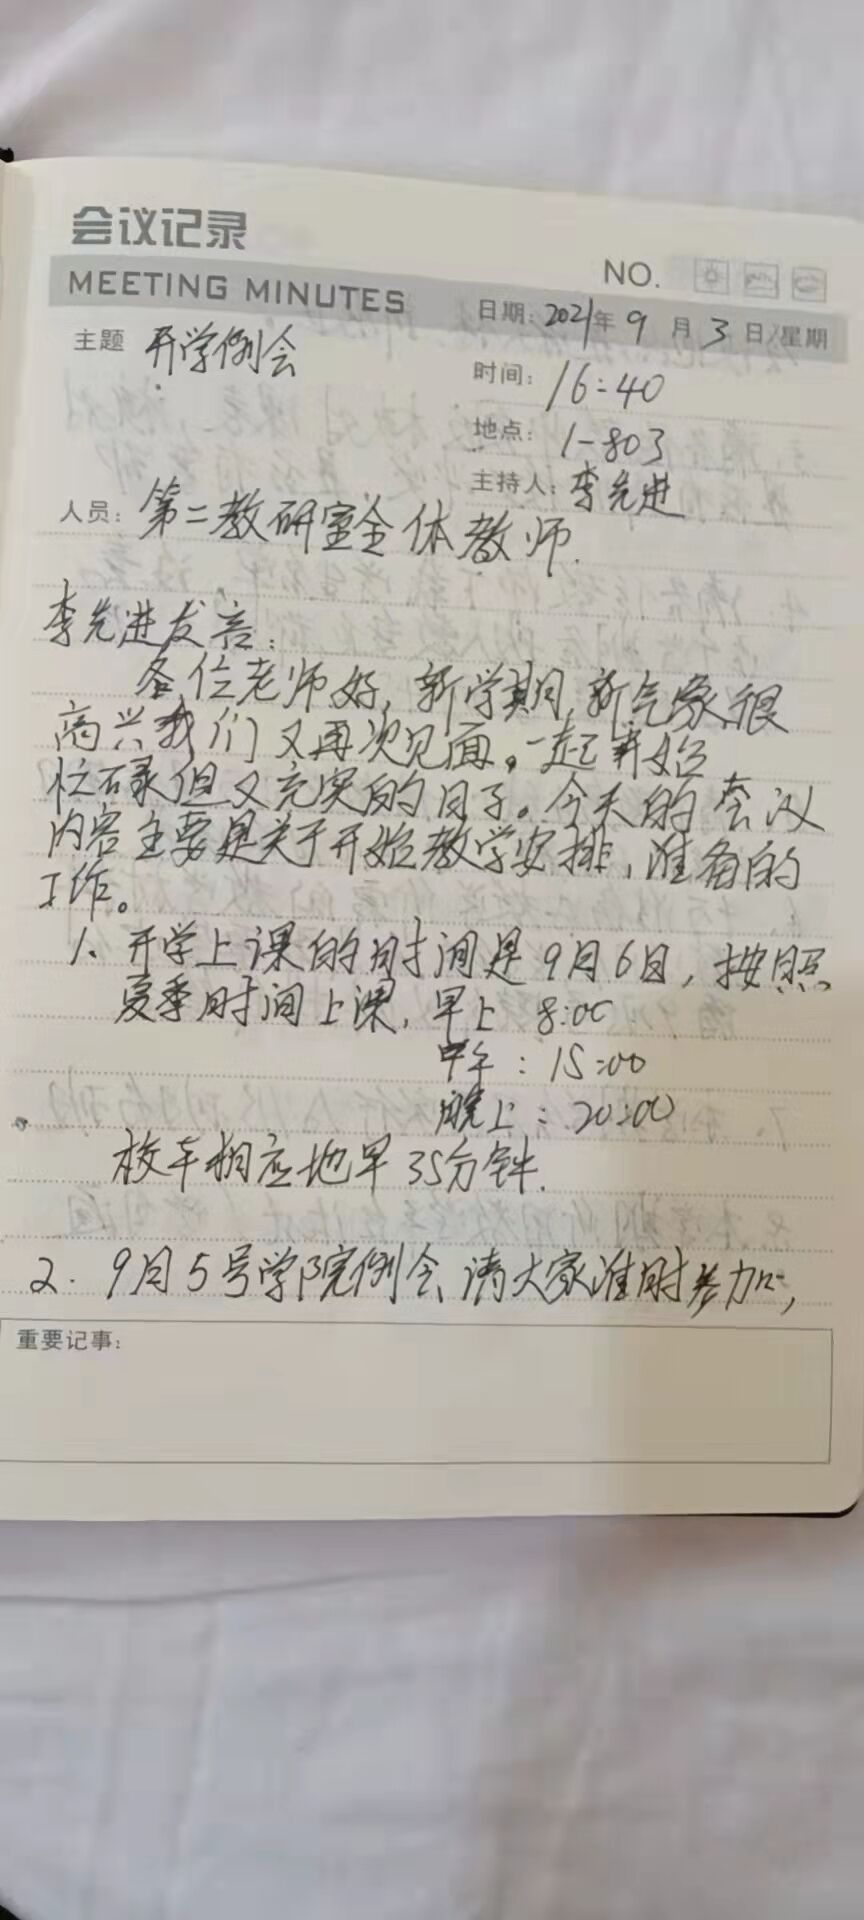 会议记录
NO.
MEETING MINUTES
日期: 2021年 9 月 3 日/星期
主题 开学例会
时间: 16:40
地点: 1-803
主持人: 李先进
人员: 第二教研室全体教师.
李先进发言:
各位老师好, 新学期, 新气象, 很
高兴我们又再次见面。一起开始
忙碌但又充实的日子。今天的会议
内容主要是关于开始教学安排, 准备的
工作。
1、开学上课的时间是9月6日, 按照
夏季时间上课, 早上 8:00
中午: 15:00
晚上: 20:00
校车相应地早35分钟.
2. 9月5号学院例会, 请大家准时参加,
重要记事: